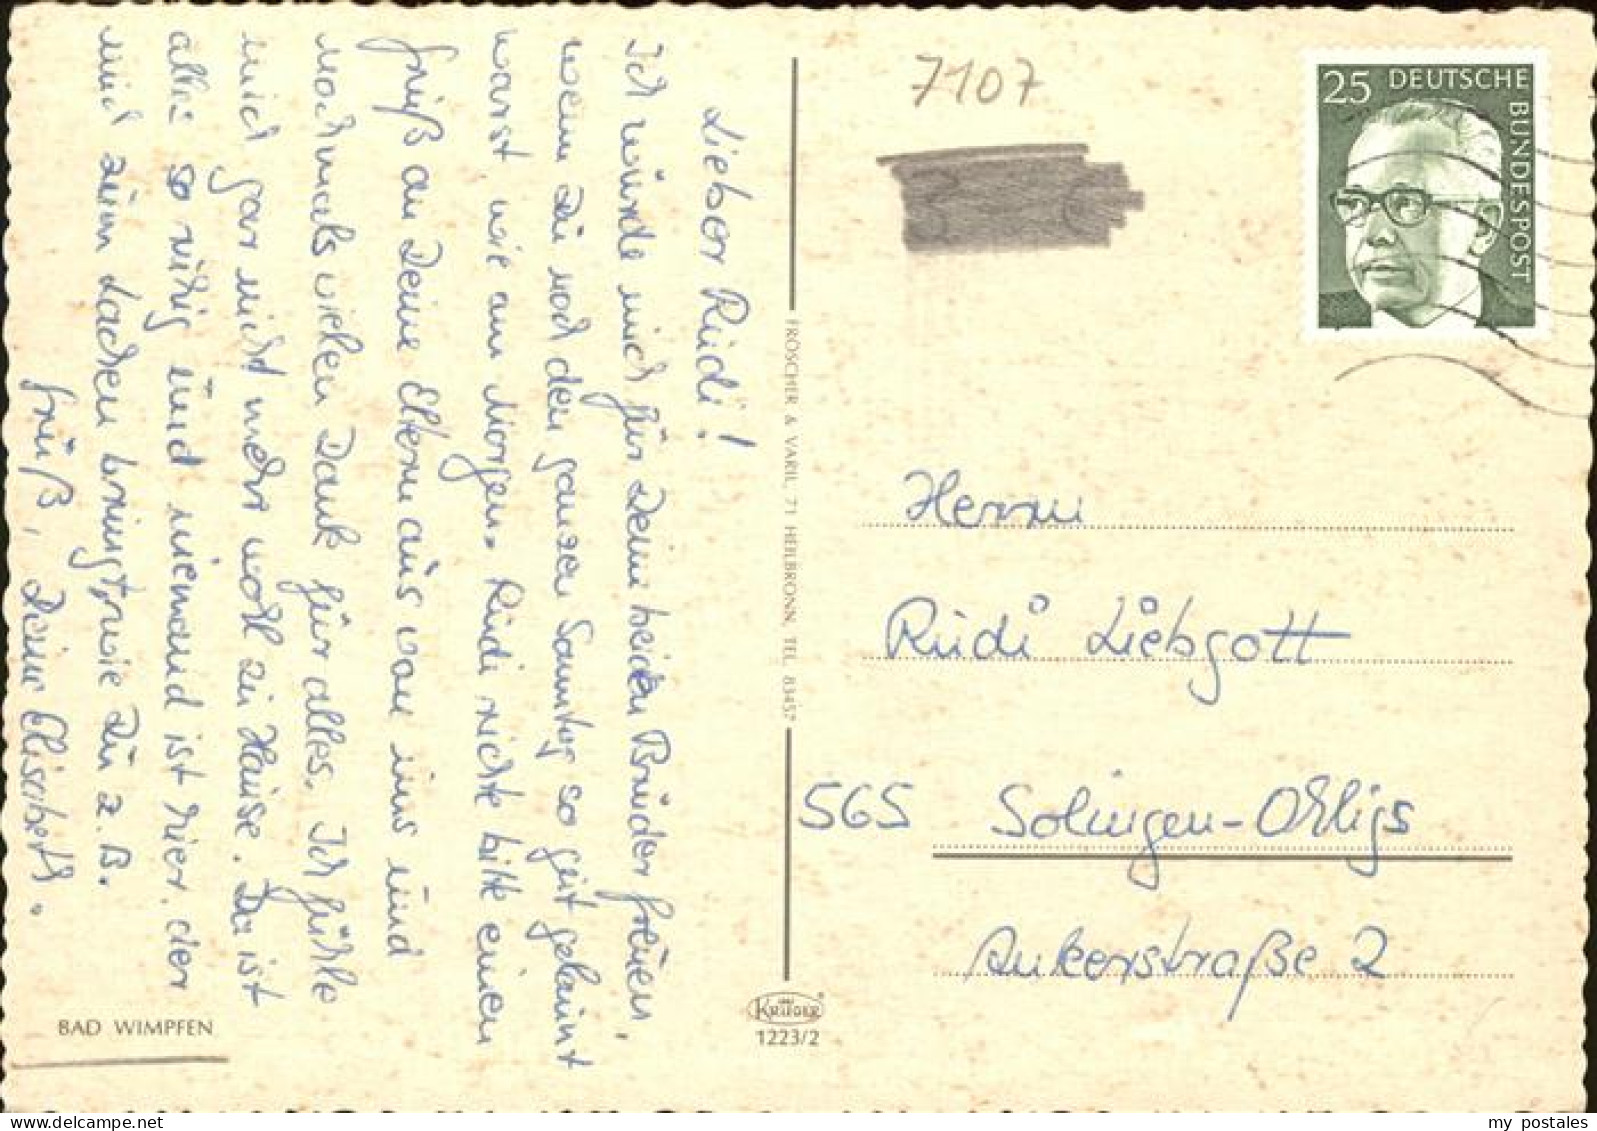 Lieber Rudi!
Ich würde mich für Deine beiden Brüder freuen,
wenn Du noch den ganzen Sonntag so gut gelaunt
warst wie am Morgen. Rudi richte bitte einen
Gruß an Deine Eltern aus von uns und
nochmals vielen Dank für alles. Ich fühle
mich gar nicht mehr wohl zu Hause. Da ist
alles so ruhig und niemand ist hier, der
mich zum Lachen bringt, wie Du z. B.
Gruß, Deine Elisabeth.
BAD WIMPFEN
FRÖSCHER & VARIL, 71 HEILBRONN, TEL. 83457
KRÜGER
1223/2
7107
25 DEUTSCHE
BUNDESPOST
Herrn
Rudi Liebgott
565 Solingen-Ohligs
Ankerstraße 2
my postales